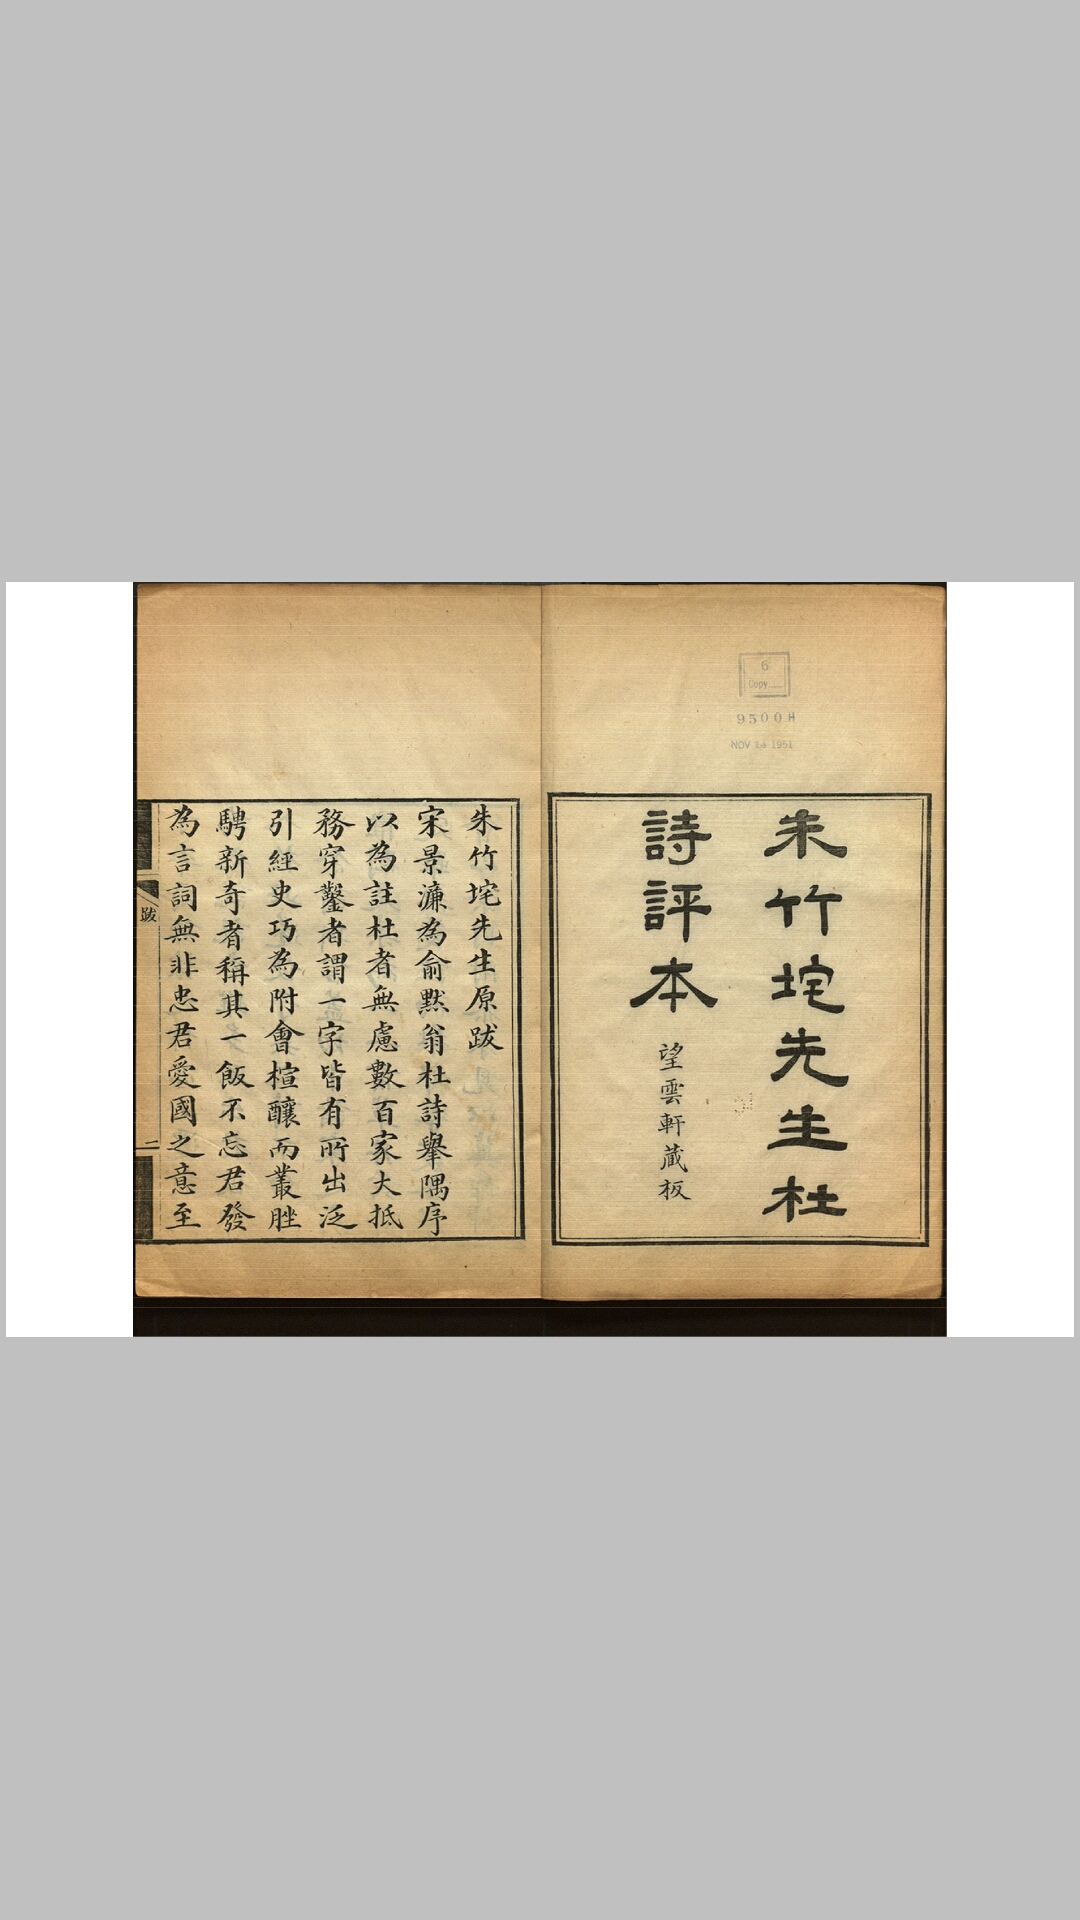 6
Copy
9500H
NOV 14 1951
朱竹垞先生杜
詩評本
望雲軒藏板
朱竹垞先生原跋
宋景濂為俞默翁杜詩舉隅序
以為註杜者無慮數百家大抵
務穿鑿者謂一字皆有所出泛
引經史巧為附會楦釀而叢脞
騁新奇者稱其一飯不忘君發
為言詞無非忠君愛國之意至
跋
二